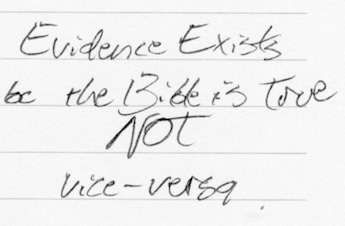 Evidence Exists
bc the Bible is True
NOT
vice-versa.